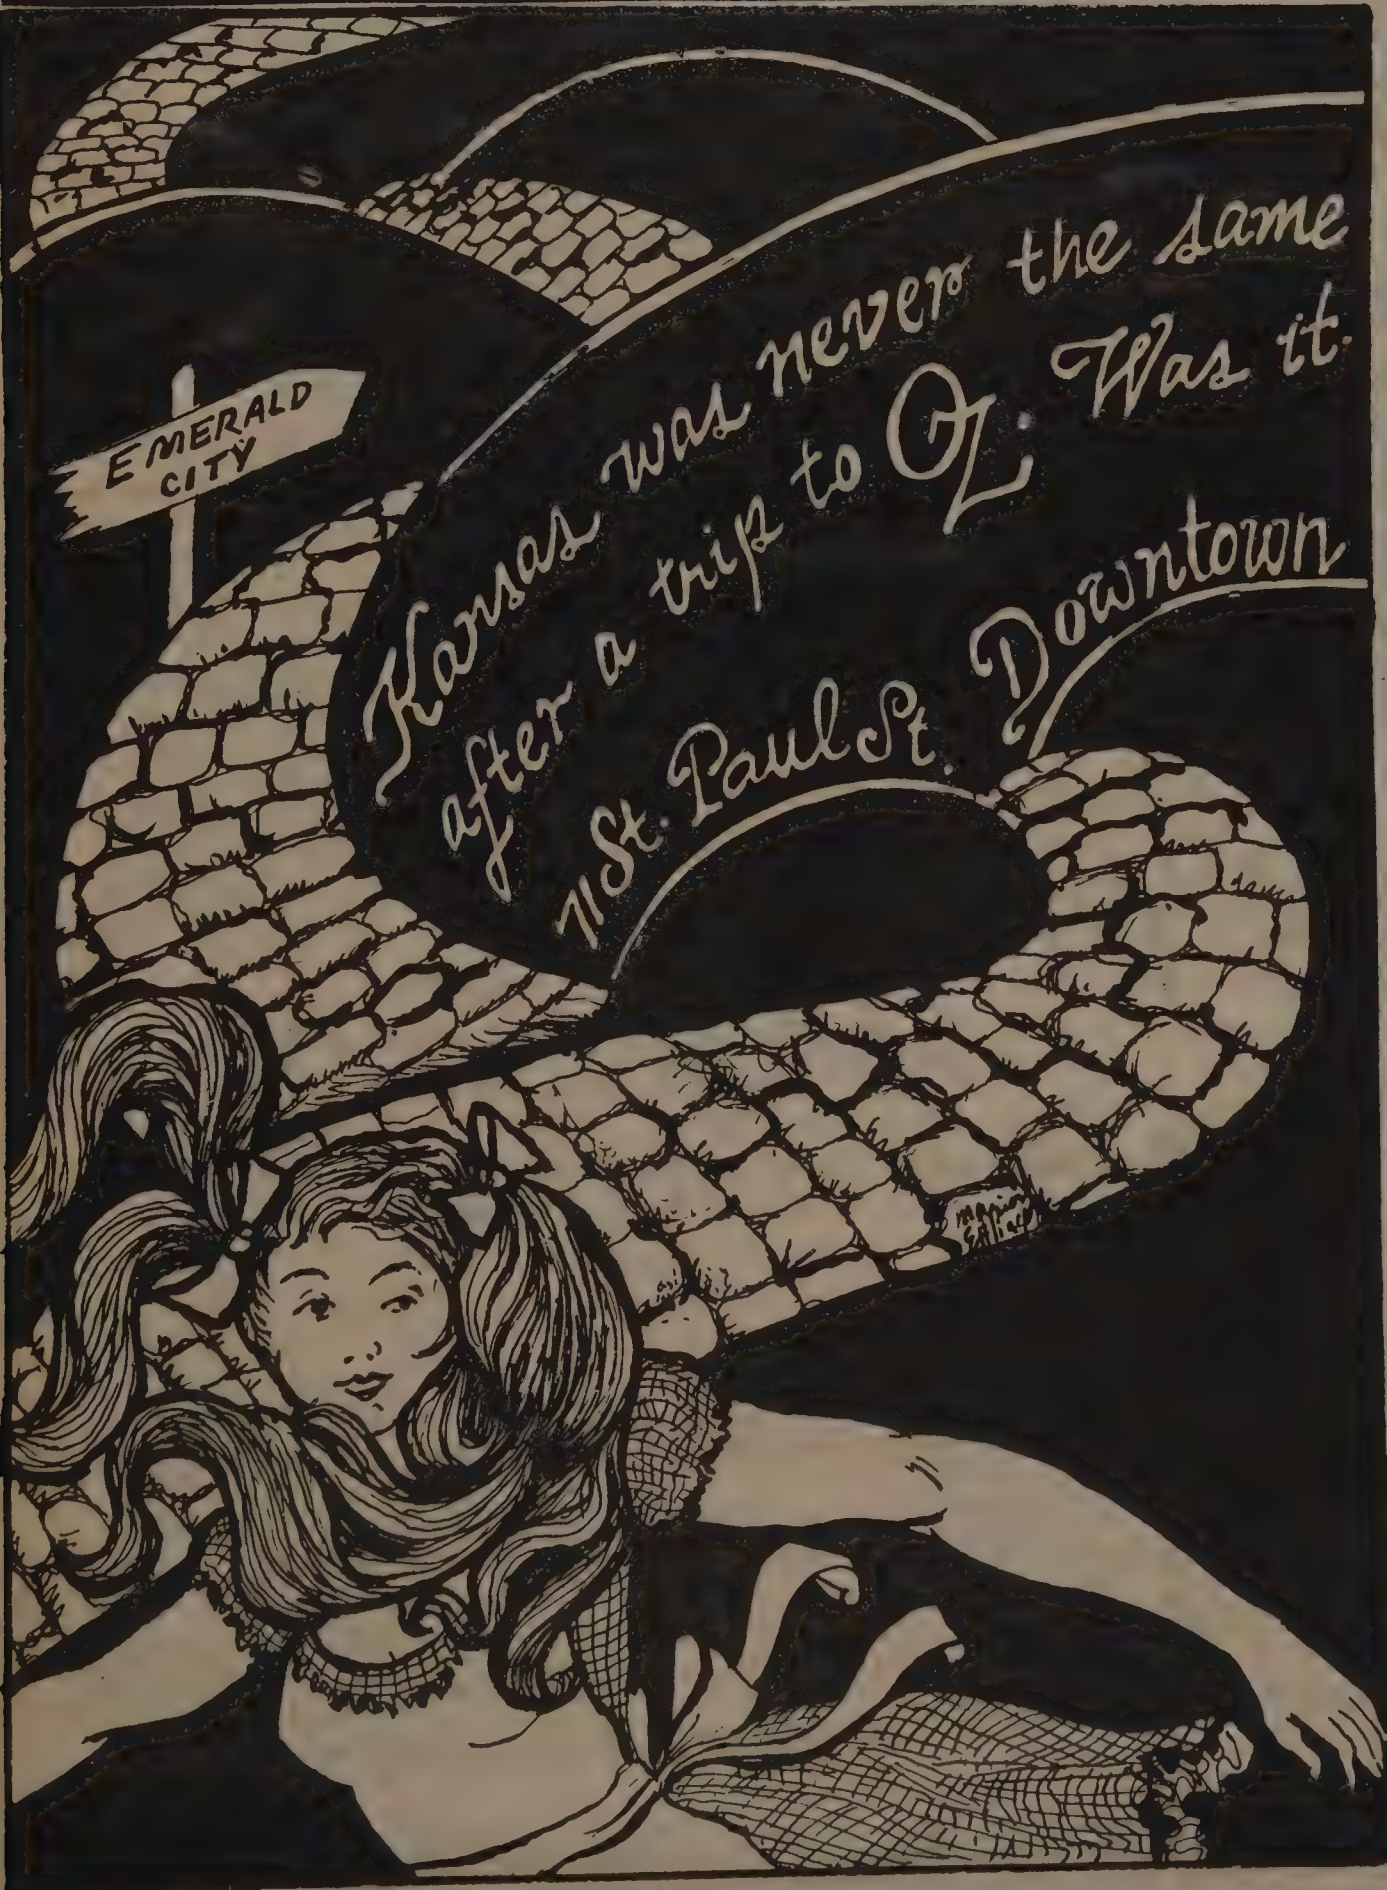 EMERALD
CITY
Kansas was never the same
after a trip to Oz. Was it
St. Paul St. Downtown